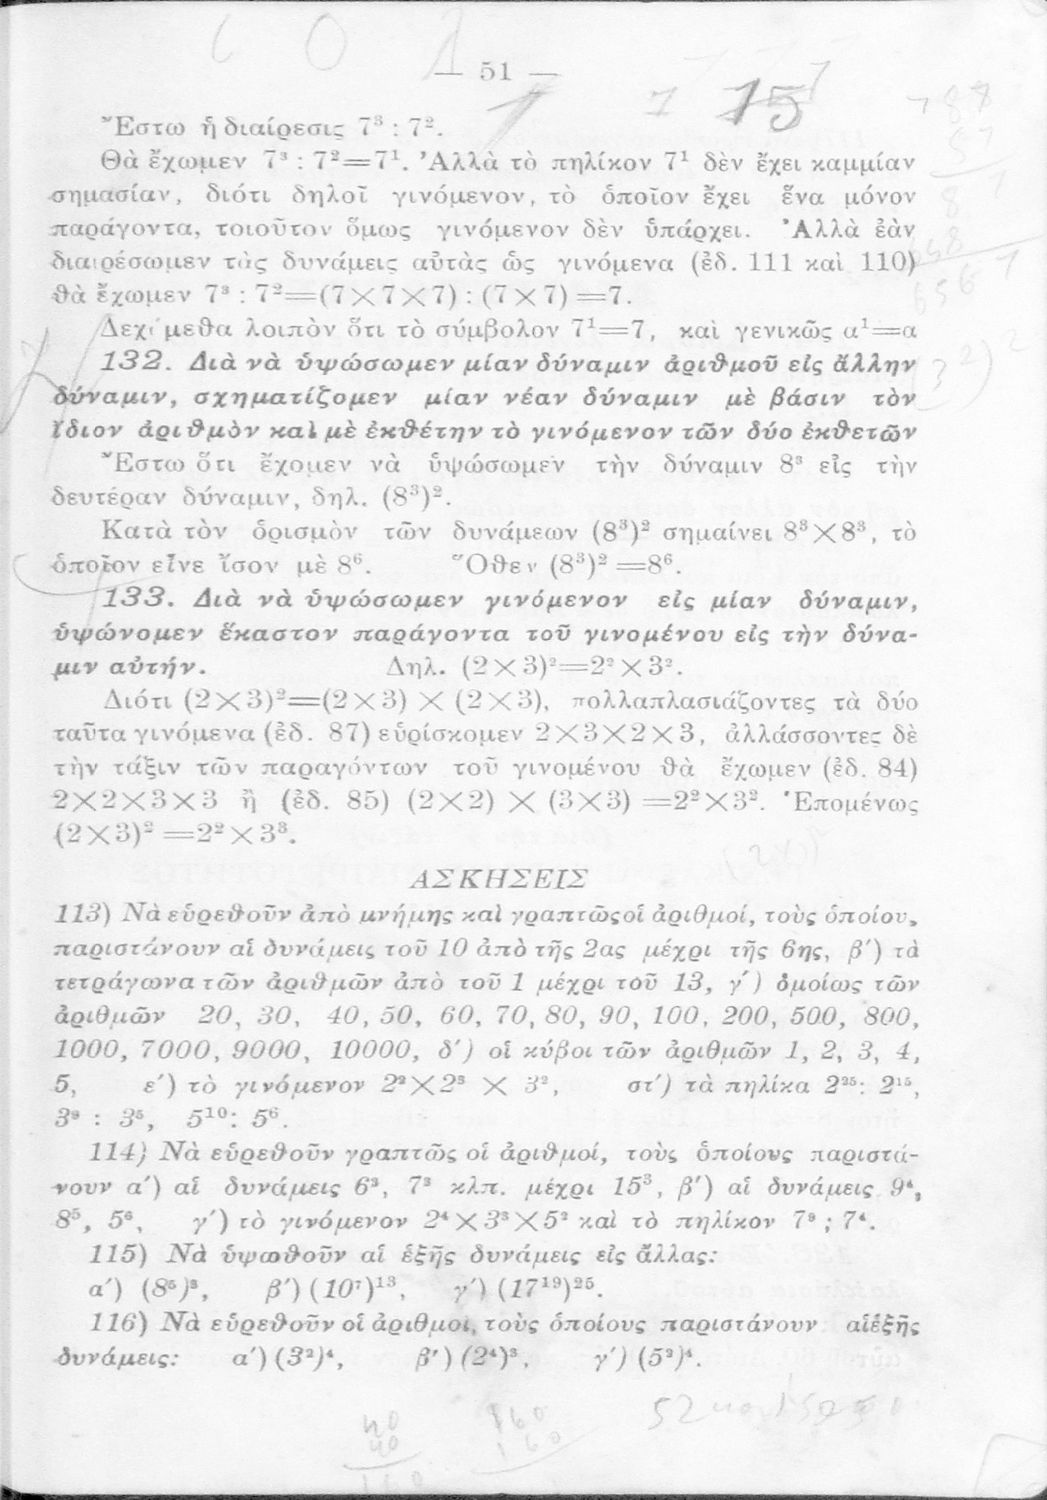 — 51 —
Ἔστω ἡ διαίρεσις 7³ : 7².
Θὰ ἔχωμεν 7³ : 7²=7¹. Ἀλλὰ τὸ πηλίκον 7¹ δὲν ἔχει καμμίαν
σημασίαν, διότι δηλοῖ γινόμενον, τὸ ὁποῖον ἔχει ἕνα μόνον
παράγοντα, τοιοῦτον ὅμως γινόμενον δὲν ὑπάρχει. Ἀλλὰ ἐὰν
διαιρέσωμεν τὰς δυνάμεις αὐτὰς ὡς γινόμενα (ἐδ. 111 καὶ 110)
θὰ ἔχωμεν 7³ : 7²=(7×7×7) : (7×7) =7.
Δεχόμεθα λοιπὸν ὅτι τὸ σύμβολον 7¹=7, καὶ γενικῶς α¹=α
132. Διὰ νὰ ὑψώσωμεν μίαν δύναμιν ἀριθμοῦ εἰς ἄλλην
δύναμιν, σχηματίζομεν μίαν νέαν δύναμιν μὲ βάσιν τὸν
ἴδιον ἀριθμὸν καὶ μὲ ἐκθέτην τὸ γινόμενον τῶν δύο ἐκθετῶν
Ἔστω ὅτι ἔχομεν νὰ ὑψώσωμεν τὴν δύναμιν 8³ εἰς τὴν
δευτέραν δύναμιν, δηλ. (8³)².
Κατὰ τὸν ὁρισμὸν τῶν δυνάμεων (8³)² σημαίνει 8³×8³, τὸ
ὁποῖον εἶνε ἴσον μὲ 8⁶. Ὅθεν (8³)² =8⁶.
133. Διὰ νὰ ὑψώσωμεν γινόμενον εἰς μίαν δύναμιν,
ὑψώνομεν ἕκαστον παράγοντα τοῦ γινομένου εἰς τὴν δύνα-
μιν αὐτήν. Δηλ. (2×3)²=2²×3².
Διότι (2×3)²=(2×3) × (2×3), πολλαπλασιάζοντες τὰ δύο
ταῦτα γινόμενα (ἐδ. 87) εὑρίσκομεν 2×3×2×3, ἀλλάσσοντες δὲ
τὴν τάξιν τῶν παραγόντων τοῦ γινομένου θὰ ἔχωμεν (ἐδ. 84)
2×2×3×3 ἢ (ἐδ. 85) (2×2) × (3×3) =2²×3². Ἑπομένως
(2×3)² =2²×3³.
ΑΣΚΗΣΕΙΣ
113) Νὰ εὑρεθοῦν ἀπὸ μνήμης καὶ γραπτῶς οἱ ἀριθμοί, τοὺς ὁποίου,
παριστάνουν αἱ δυνάμεις τοῦ 10 ἀπὸ τῆς 2ας μέχρι τῆς 6ης, β′) τὰ
τετράγωνα τῶν ἀριθμῶν ἀπὸ τοῦ 1 μέχρι τοῦ 13, γ′) ὁμοίως τῶν
ἀριθμῶν 20, 30, 40, 50, 60, 70, 80, 90, 100, 200, 500, 800,
1000, 7000, 9000, 10000, δ′) οἱ κύβοι τῶν ἀριθμῶν 1, 2, 3, 4,
5, ε′) τὸ γινόμενον 2²×2³ × 3², στ′) τὰ πηλίκα 2²⁵: 2¹⁵,
3⁹ : 3⁵, 5¹⁰: 5⁶.
114) Νὰ εὑρεθοῦν γραπτῶς οἱ ἀριθμοί, τοὺς ὁποίους παριστά-
νουν α′) αἱ δυνάμεις 6³, 7³ κλπ. μέχρι 15³, β′) αἱ δυνάμεις 9⁴,
8⁵, 5⁶, γ′) τὸ γινόμενον 2⁴×3³×5² καὶ τὸ πηλίκον 7⁹ ; 7⁴.
115) Νὰ ὑψωθοῦν αἱ ἑξῆς δυνάμεις εἰς ἄλλας:
α′) (8⁵)³, β′) (10⁷)¹³, γ′) (17¹⁹)²⁵.
116) Νὰ εὑρεθοῦν οἱ ἀριθμοι, τοὺς ὁποίους παριστάνουν αἱ ἑξῆς
δυνάμεις: α′) (3²)⁴, β′) (2⁴)³, γ′) (5²)⁴.